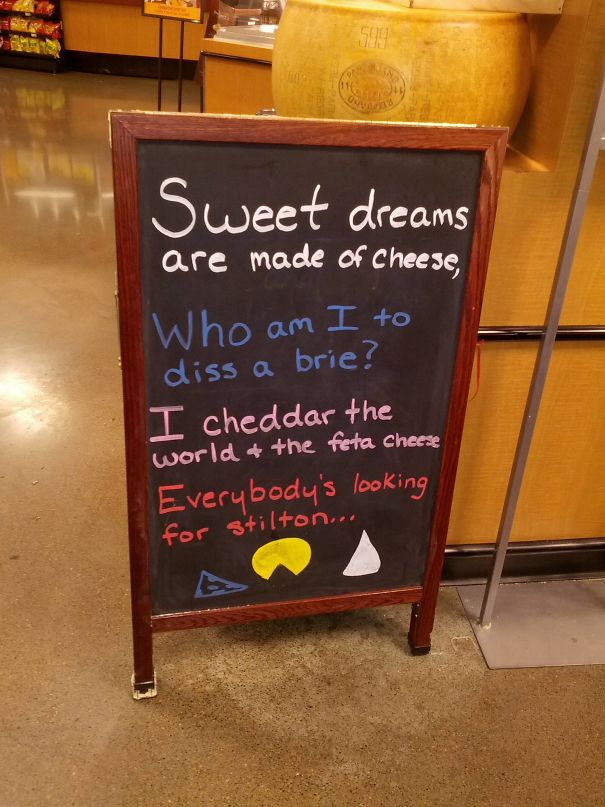 Sweet dreams
are made of cheese,
Who am I to
diss a brie?
I cheddar the
world & the feta cheese
Everybody's looking
for stilton...
599